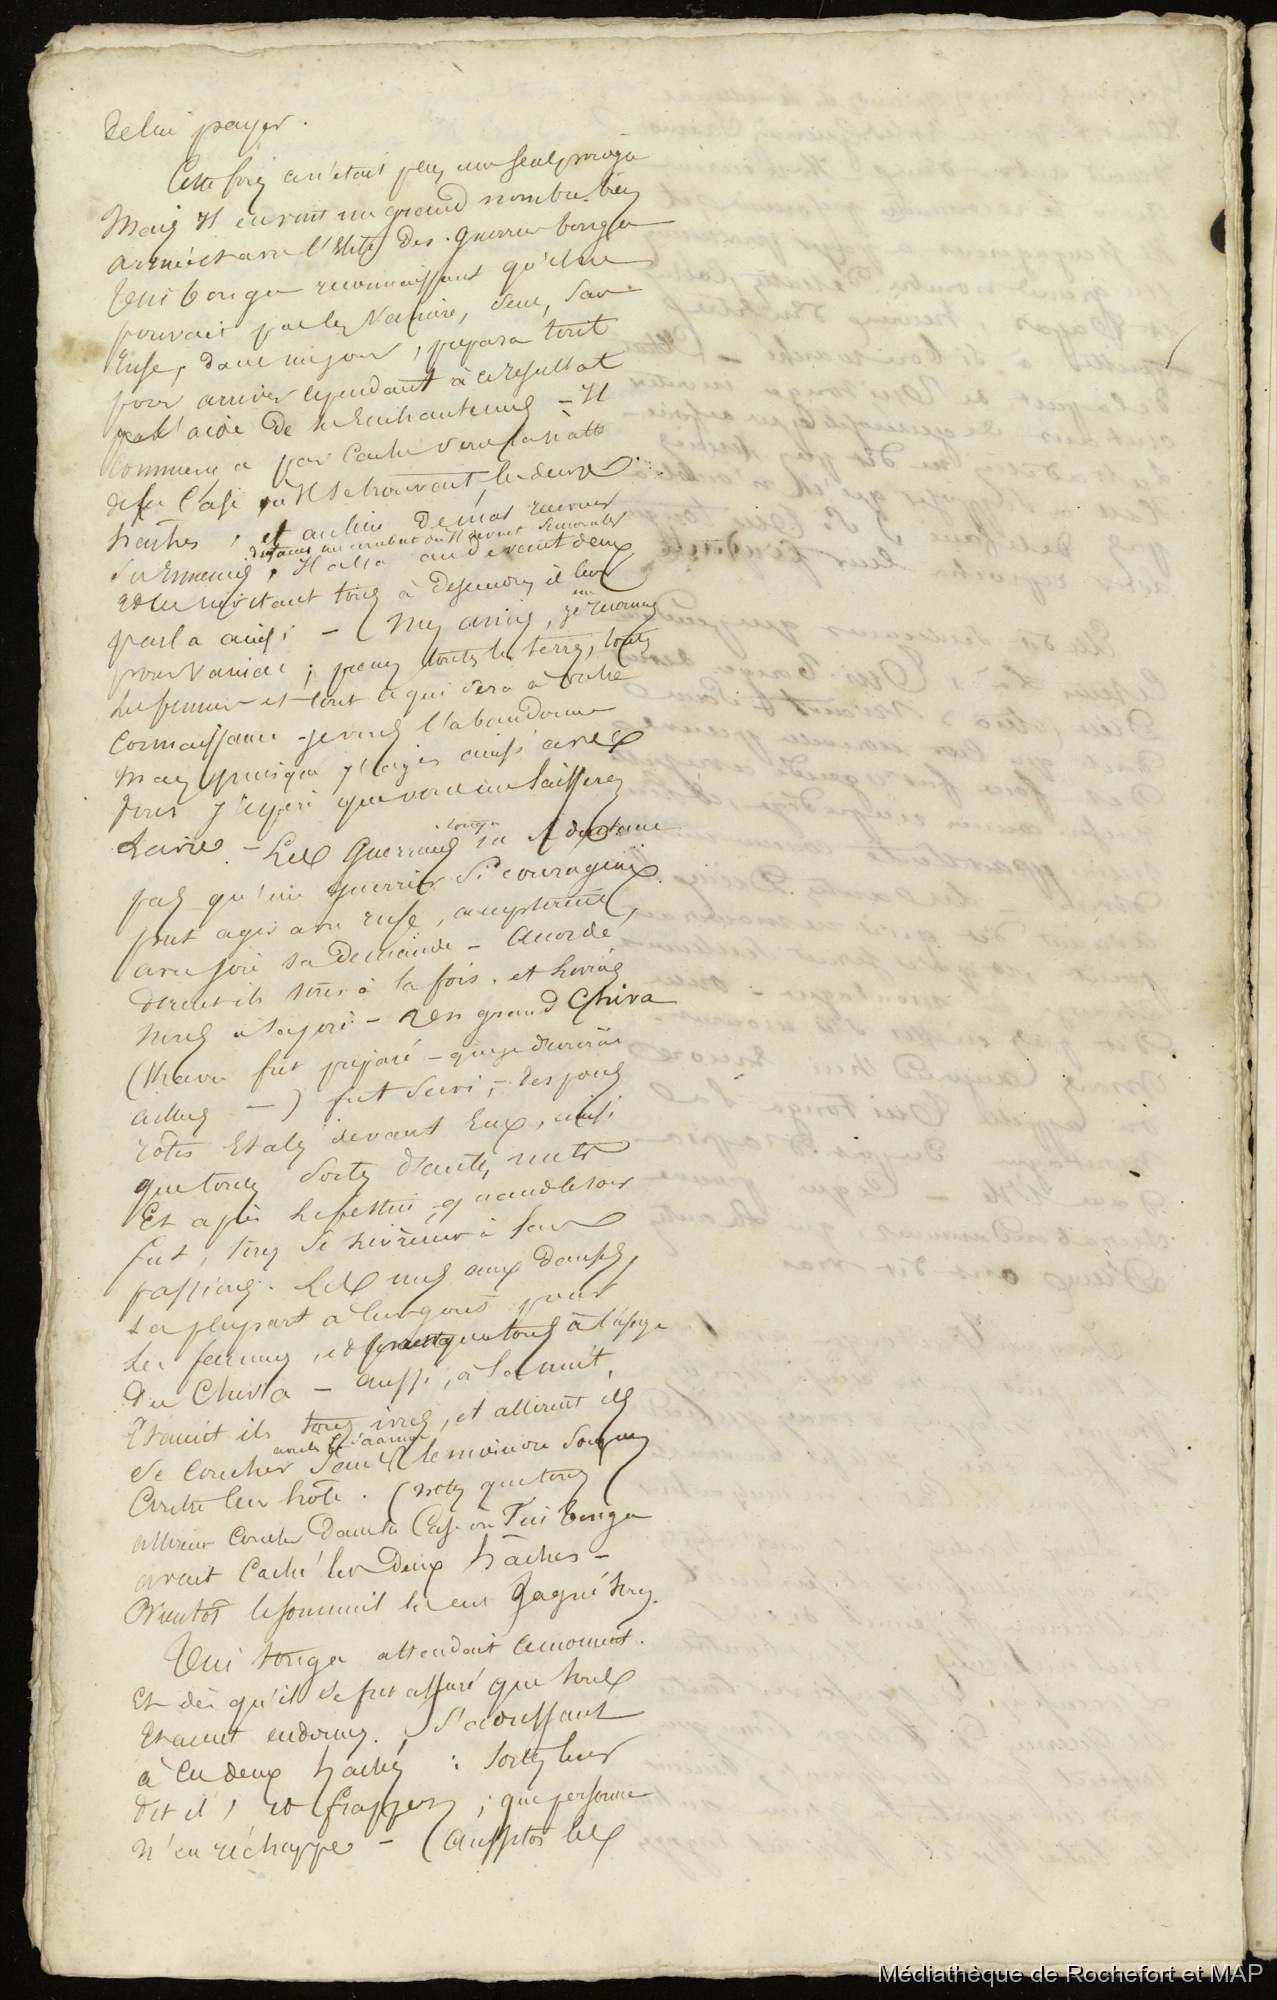 de lui payer.
Cette fois ce n'était plus une seule piroga
Mais Il en vint un grand nombre bien
armés et avec l'Elite des guerriers tonga
Tui tonga reconnaissant qu'il ne
pouvait pas les Vaincre, seul, sans
Ruse, dans ce jour, prépara tout
pour arriver cependant à ce resultat
par l'aide de ses Enchantemens - Il
Commença par Cacher sous la natte
de la Case où Ils se trouvaient, les deux
haches, et au lieu de mal recevoir
Ses Ennemis, Il alla au devant d'eux
et les invitant tous à Descendre, il leur
parla ainsi - (Mes amis, je me reconnais
pour Vaincu ; prenez toutes les terres, toutes
les femmes et tout ce qui sera à votre
Connaissance - je vous l'abandonne
Mais puisque j'agis ainsi avec
vous j'espère que vous me laisserez
la vie. - Les Guerriers tonga ne se doutant
pas qu'un guerrier si courageux
put agir avec ruse, acceptèrent
avec joie sa Demande - Accordé,
dirent ils tous à la fois. et livrons
nous à la joie - Un grand Chiva
(Kava fut préparé - que je décrirai
ailleurs -) fut servi, - des porcs
rôtis Etalés devant Eux, ainsi
que toutes Sortes d'autres mets
Et après le festin - quand le soir
fut, tous se livrèrent à leurs
passions. Les uns aux Danses,
La plupart à leur gout pour
Les femmes, et presque tous à l'usage
du Chiva - aussi, à la nuit,
Etaient ils tous ivres, et allèrent ils
Se Coucher Sans le moindre Soupçon
Contre leur hôte. (notez que tous
allèrent Coucher Dans la Case où Tui tonga
avait Caché les Deux haches -
Bientôt le sommeil les eut Gagné tous.
Tui tonga attendait ce moment.
Et dès qu'il se fut assuré que tous
Etaient endormis, S'adressant
à ces deux haches : Sortez leur
dit il, et frappez ; que personne
n'en réchappe - (Aussitôt les
Médiathèque de Rochefort et MAP